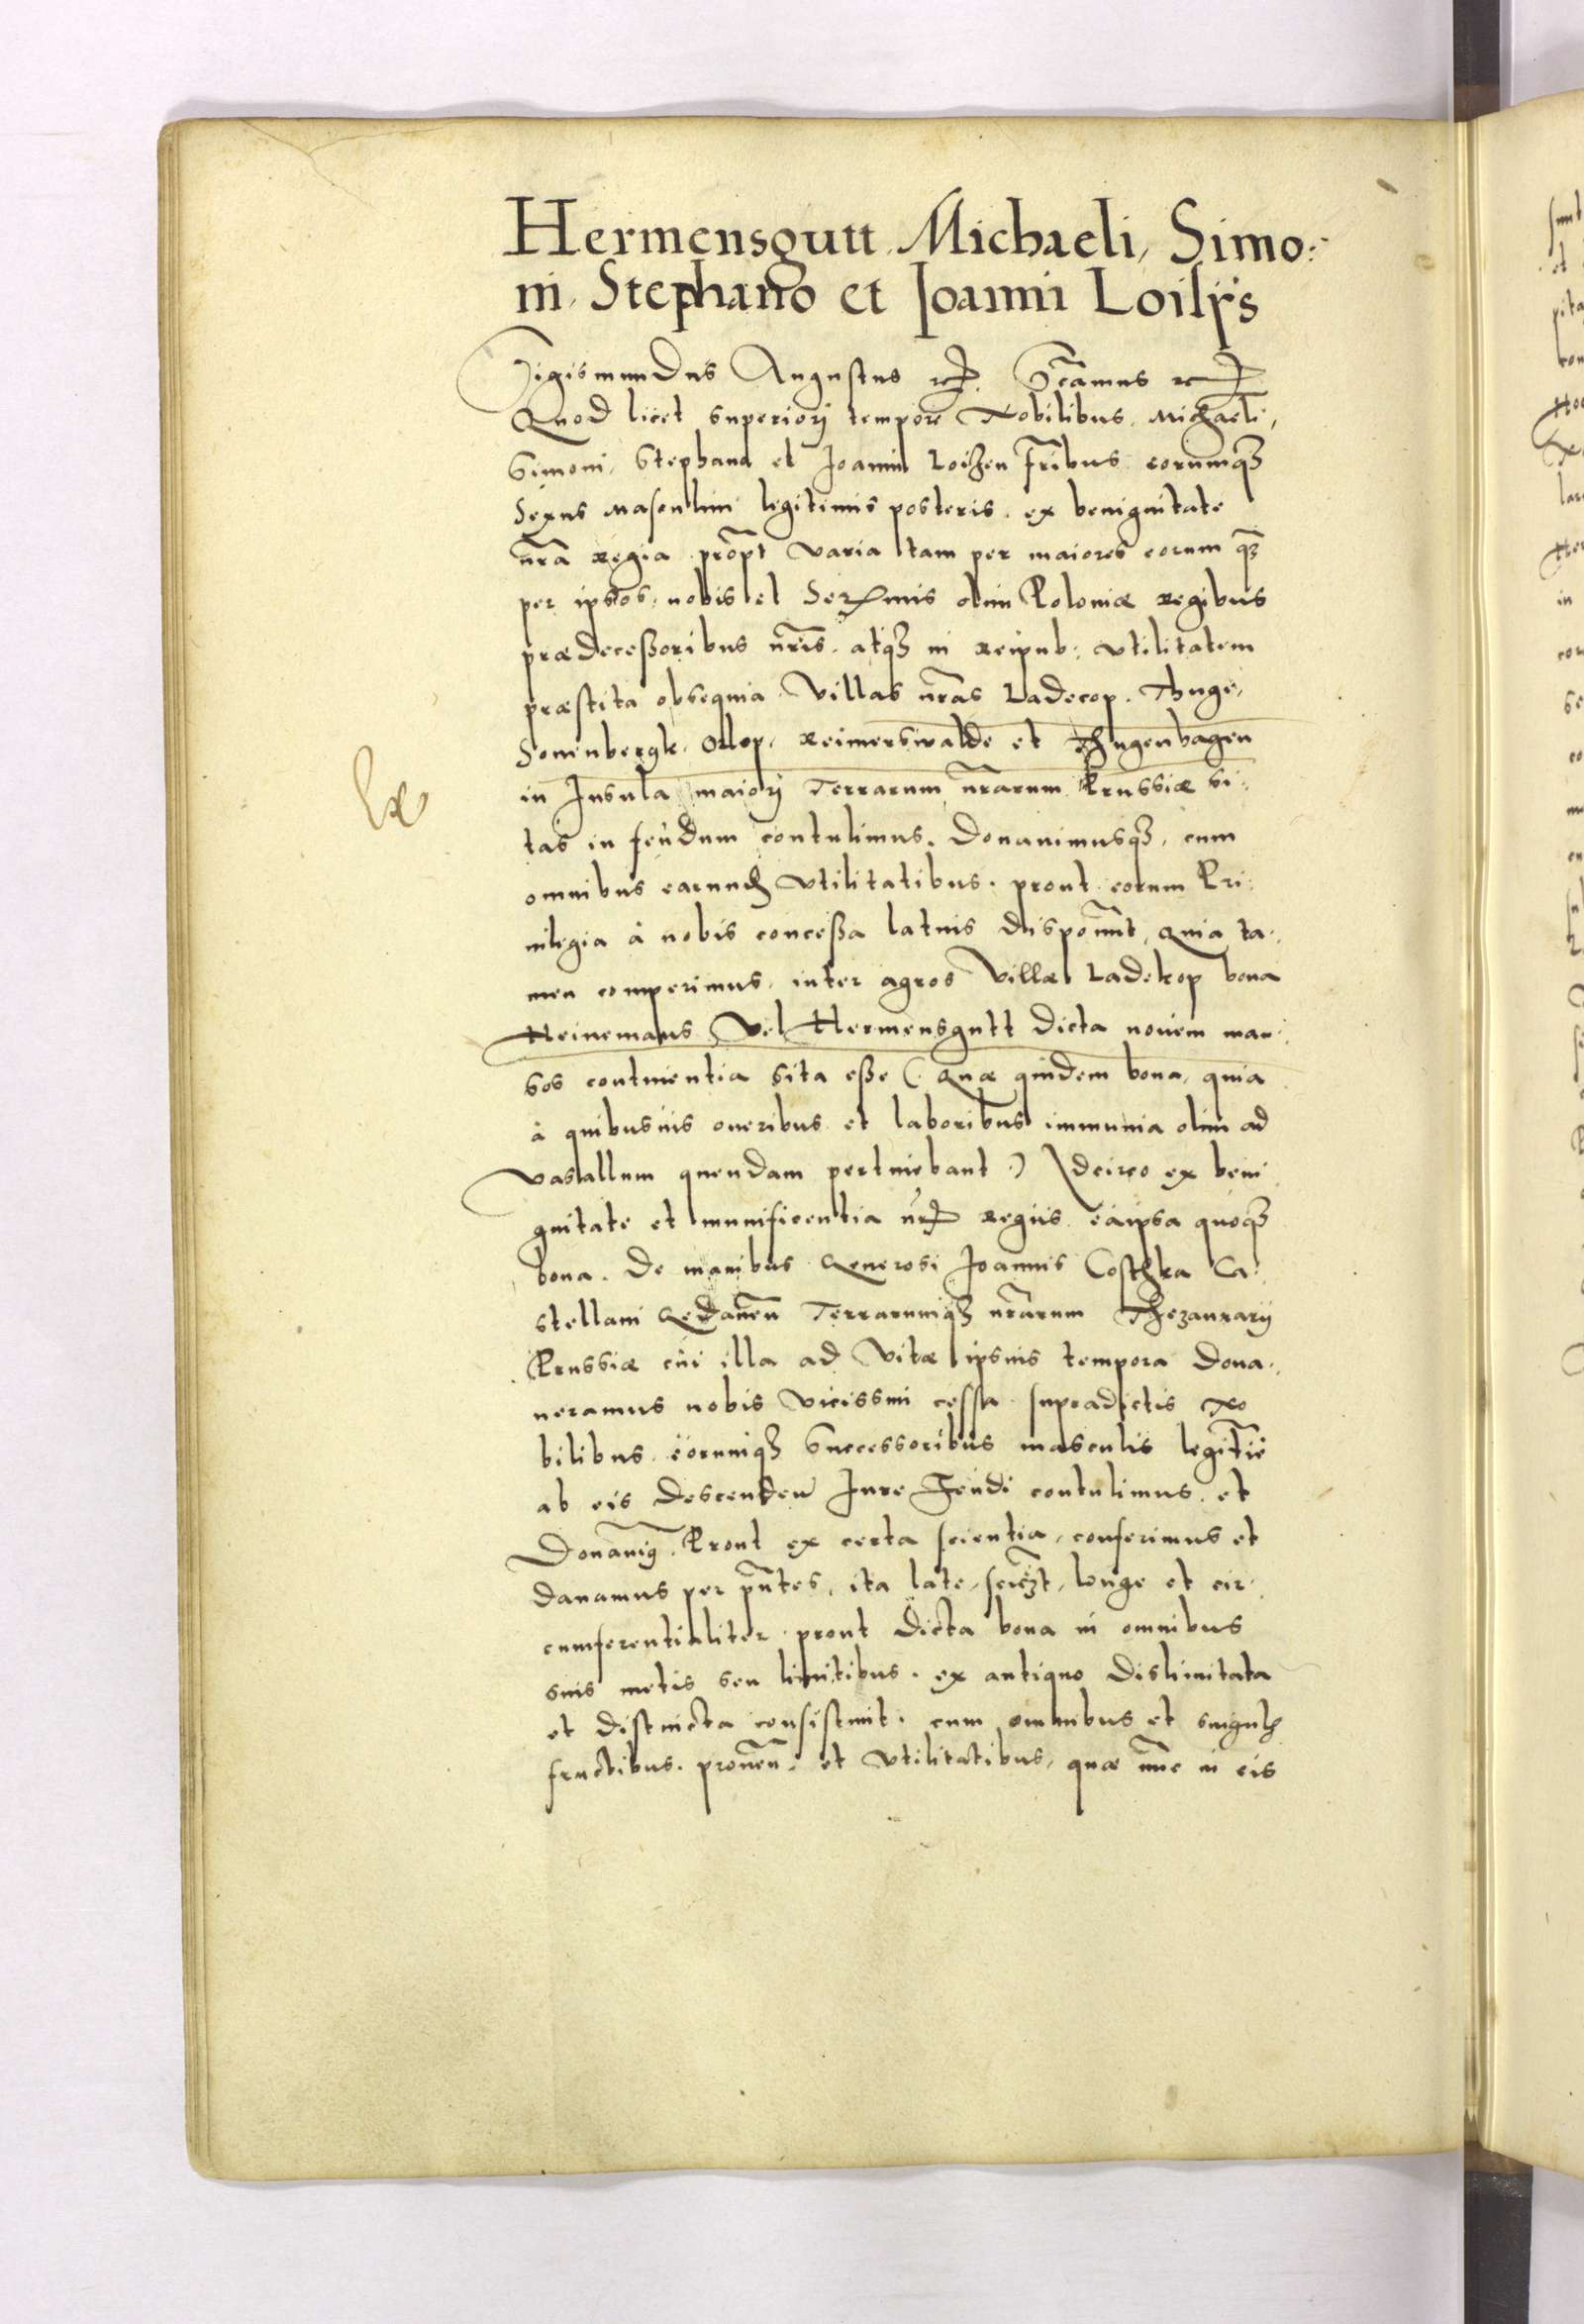 Hermensgutt Michaeli, Simo:
ni, Stephano et Joanni Loisijs
Sigismundus Augustus etc. Scamus etc.
Quod licet superiorj tempore Nobilibus Michaeli,
Simoni, Stephano et Joanni Loitzen fribus eorumq3
Sexus masculini legitimis posteris ex benignitate
nra Regia propt varia tam per maiores eorum q3
per ipsos nobis et Sermis olim Poloniæ Regibus
prædeceßoribus nris atq3 in Reipub: vtilitatem
præstita obsequia Villas nras Ladecop. Thuge,
Sonenbergk, Orlop, Reimerswalde et Thugenhagen
in Insula maiorj Terrarum nrarum Prussiæ si:
tas in feudum contulimus. Donauimusq3, cum
omnibus earund vtilitatibus prout eorum Pri:
uilegia à nobis conceßa latius disponunt, quia ta:
men comperimus, inter agros Villæ Ladekop bona
Heinemans Vel Hermensgutt dicta nouem man:
sos continentia sita eße (: Quæ quidem bona, quia
à quibusuis oneribus et laboribus immunia olim ad
vasallum quendam pertinebant :) Idcirco ex beni
gnitate et munificentia nr Regiis eaipsa quoq3
bona. De manibus Generosi Joannis Costhka Ca:
stellani Gedanen Terrarumq3 nrarum Thezaurarij
Prussiæ cui illa ad Vitæ ipsius tempora dona:
ueramus nobis vicissim cessa supradictis No
bilibus eorumq3 Successoribus masculis legitime
ab eis descenden Jure Feudi contulimus et
Donauim9. Prout ex certa scientia, conferimus et
danamus per pntes, ita late, longe et cir:
cumferentialiter prout dicta bona in omnibus
suis metis seu limitibus ex antiquo dislimitata
et distincta consistunt. cum omnibus et singul
fructibus. prouen. et vtilitatibus, quæ nunc in eis